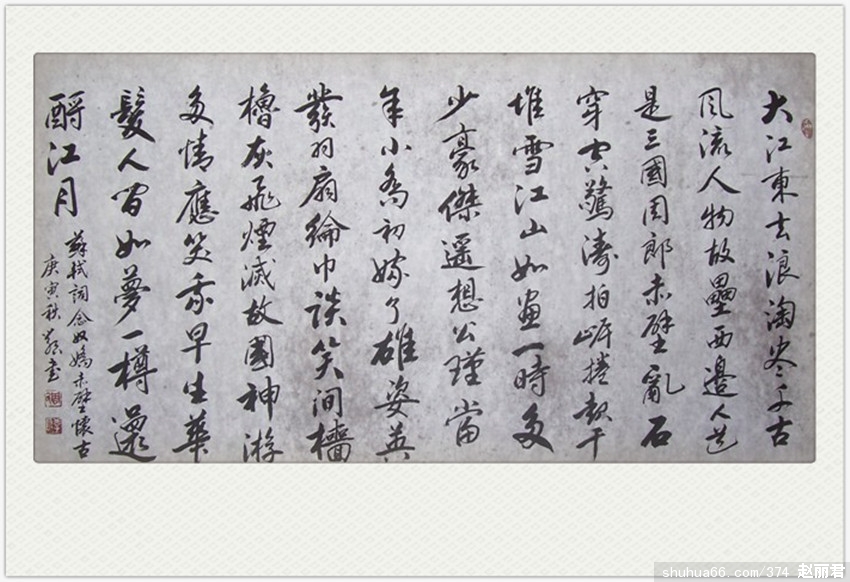 大江東去浪淘尽千古
风流人物故壘西邊人道
是三國周郎赤壁亂石
穿空驚濤拍岸捲起千
堆雪江山如畫一時多
少豪傑遥想公瑾當
年小喬初嫁了雄姿英
發羽扇綸巾談笑间檣
櫓灰飛煙滅故國神游
多情應笑我早生華
髮人间如夢一樽還
酹江月
蘇軾詞念奴嬌赤壁懷古
庚寅秋书
shuhua66.com/374 赵丽君